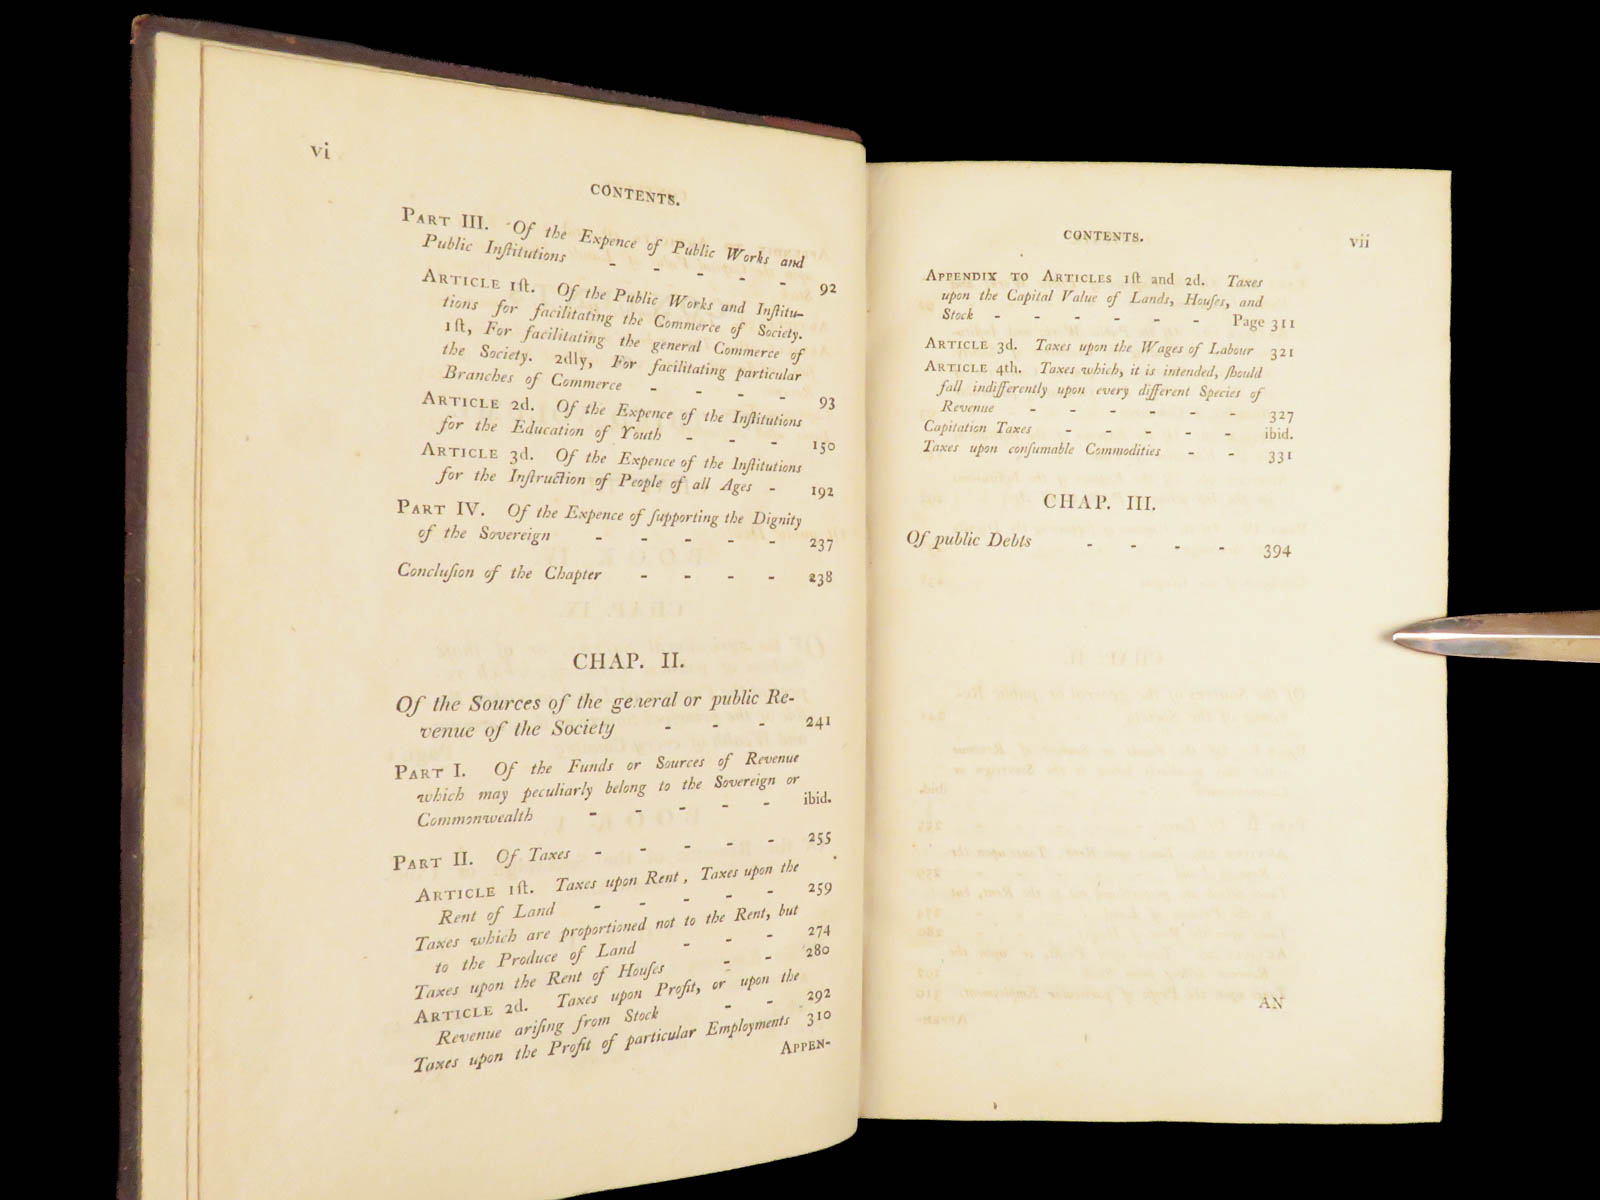 vi
CONTENTS.
PART III. Of the Expence of Public Works and
Public Inſtitutions - - - - - 92
ARTICLE 1ſt. Of the Public Works and Inſtitu-
tions for facilitating the Commerce of Society.
1ſt, For facilitating the general Commerce of
the Society. 2dly, For facilitating particular
Branches of Commerce - - - - 93
ARTICLE 2d. Of the Expence of the Inſtitutions
for the Education of Youth - - - 150
ARTICLE 3d. Of the Expence of the Inſtitutions
for the Inſtruction of People of all Ages - 192
PART IV. Of the Expence of ſupporting the Dignity
of the Sovereign - - - - - 237
Concluſion of the Chapter - - - - 238
CHAP. II.
Of the Sources of the general or public Re-
venue of the Society - - - 241
PART I. Of the Funds or Sources of Revenue
which may peculiarly belong to the Sovereign or
Commonwealth - - - - - ibid.
PART II. Of Taxes - - - - - 255
ARTICLE 1ſt. Taxes upon Rent, Taxes upon the
Rent of Land - - - - - 259
Taxes which are proportioned not to the Rent, but
to the Produce of Land - - - 274
Taxes upon the Rent of Houſes - - 280
ARTICLE 2d. Taxes upon Profit, or upon the
Revenue ariſing from Stock - - 292
Taxes upon the Profit of particular Employments 310
APPEN-
CONTENTS. vii
APPENDIX TO ARTICLES 1ſt and 2d. Taxes
upon the Capital Value of Lands, Houſes, and
Stock - - - - - - Page 311
ARTICLE 3d. Taxes upon the Wages of Labour 321
ARTICLE 4th. Taxes which, it is intended, ſhould
fall indifferently upon every different Species of
Revenue - - - - - - 327
Capitation Taxes - - - - - ibid.
Taxes upon conſumable Commodities - - 331
CHAP. III.
Of public Debts - - - - 394
AN